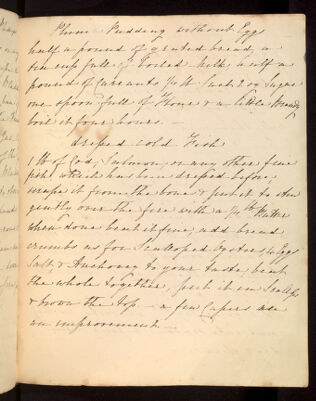 Plum Pudding without Eggs
half a pound of grated bread, a
tea cup full of boiled milk half a
pound of Currants Suet 2 oz Sugar
one spoon full of Flour & a little Brandy
boil it four hours. —
dressed cold Fish
1 lb of Cod, Salmon, or any other fine
fish which has been dressed before,
scrape it from the bone & put it to stew
gently over the fire with a 1/4 lb Butter
when done beat it fine, add bread
crumbs as for Scalloped Oysters, Eggs
Salt, & Anchovy to your taste, beat
the whole together, put it in Scallops
& brown the top — a few Capers are
an improvement —